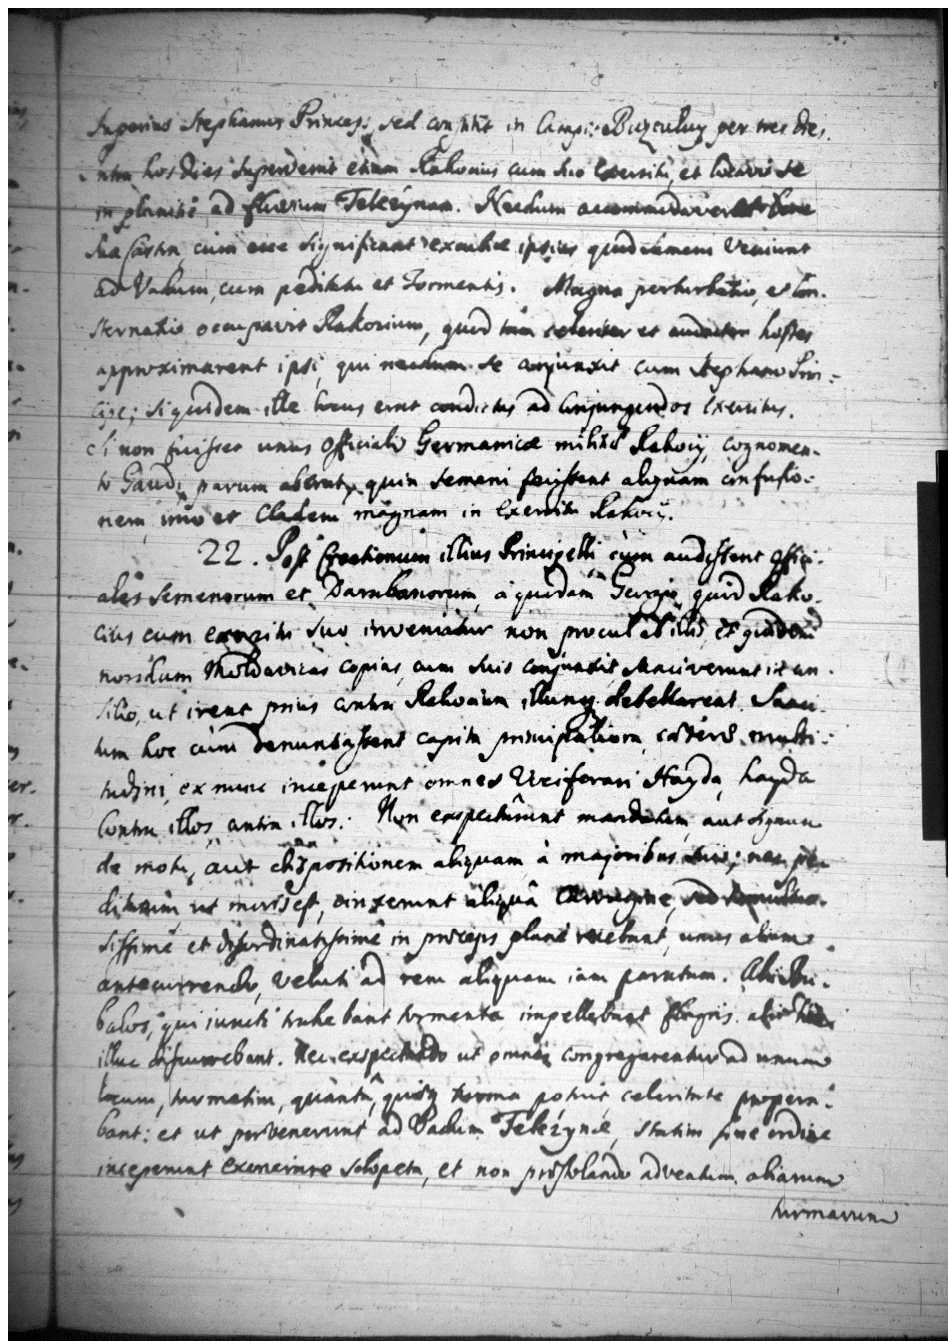 Superius Stephanus Princeps, sed constitit in Campis Buzculuy per tres dies.
Intra hos dies supervenit etiam Rakocius cum suo exercitu, et locavit se
in planitie ad fluvium Telezynam. Necdum accommodaverat bene
sua Castra, cum ecce significant excubiae ipsius quod semeni veniunt
ad Vadum, cum peditatu et Tormentis. Magna perturbatio, et Con-
sternatio occupavit Rakocium, quod tam celeriter et audacter hostes
approximarent ipsi, qui necdum se conjunxit cum Stephano Prin-
cipe; siquidem ille locus erat condictus ad conjungendos exercitus.
Si non fuisset unus Officialis Germanicae militiae Rakocij, cognomen-
to Gaudi, parum aberat, quin semani fecissent aliquam confusio-
nem, imo et Cladem magnam in exercitu Rakocij.
22. Post Creationem illius Principelli cum audissent offici-
ales Semenorum et Darabanorum, a quodam Georgio, quod Rako-
cius cum exercitu suo inveniatur non procul ab illis, et quidem
nondum Moldavicas copias, cum suis conjunxit sanciverunt in con-
silio, ut irent prius contra Rakocium illumq. debellarent. Sanci-
tum hoc cum denuntiassent capita principalium, caeterae multi-
tudini, ex nunc inceperunt omnes Vociferari Hayda, hayda
Contra illos, contra illos. Non exspectarunt mandatum, aut signum
de motu, aut dispositionem aliquam à majoribus suis; nec pe-
ditatum ut moris est, cinxerunt aliquâ
sissimè et disordinatissimè in praeceps planè ruebant, unus alium
antecurrendo, veluti ad rem aliquam iam paratam. Alii Bu-
balos, qui iuncti trahebant tormenta impellebant flagris. alii
illuc discurrebant. Nec exspectando ut omnes congregarentur ad unum
locum, turmatim, quantâ, quaeq turma potuit celeritate propera-
bant: et ut pervenerunt ad Vadum Telezynae, statim sine ordine
inceperunt exonerare sclopeta, et non praestolando adventum aliarum
turmarum